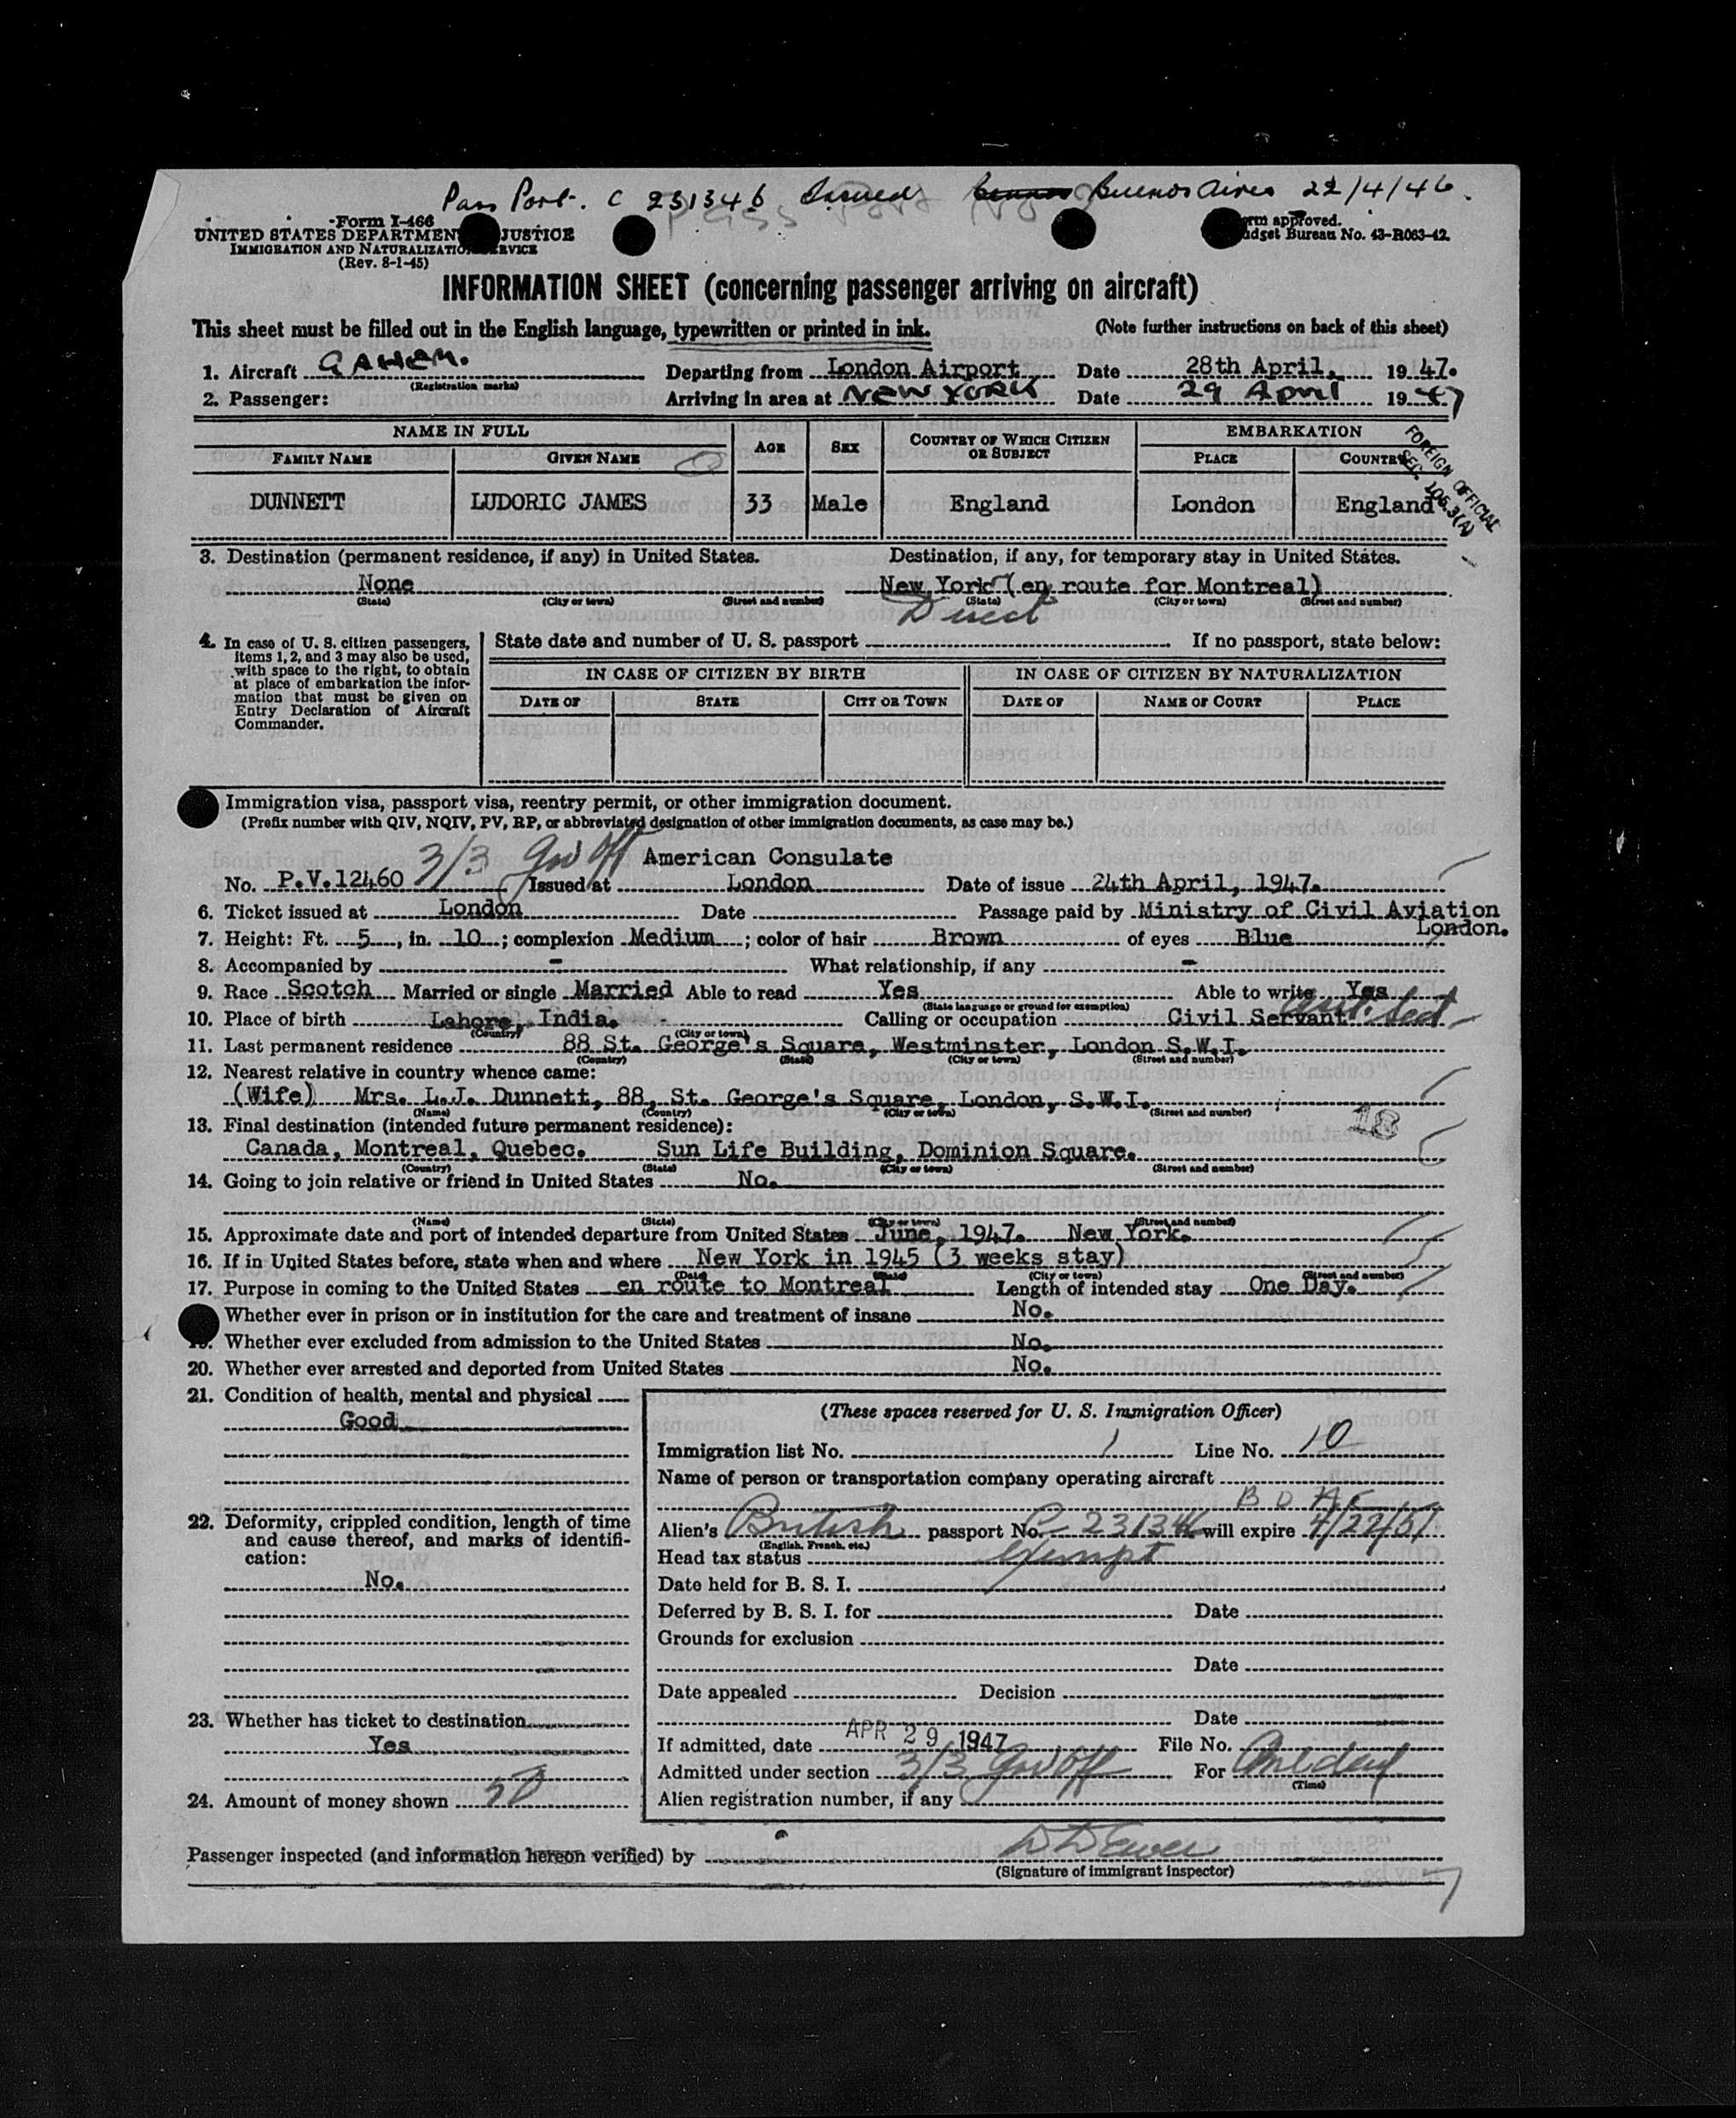 Pass Port. C 231346 Issued Buenos Aires 22/4/46.
Form I-466
UNITED STATES DEPARTMENT JUSTICE
IMMIGRATION AND NATURALIZATION SERVICE
(Rev. 8-1-45)
Form approved.
Budget Bureau No. 43-R063-42.
INFORMATION SHEET (concerning passenger arriving on aircraft)
This sheet must be filled out in the English language, typewritten or printed in ink. (Note further instructions on back of this sheet)
1. Aircraft GAHEM. Departing from London Airport Date 28th April, 1947.
(Registration marks)
2. Passenger: Arriving in area at NEW YORK Date 29 April 1947
NAME IN FULL AGE SEX COUNTRY OF WHICH CITIZEN OR SUBJECT EMBARKATION
FAMILY NAME GIVEN NAME PLACE COUNTRY
FOREIGN OFFICIAL
SEC. 105.3(A)
DUNNETT LUDORIC JAMES 33 Male England London England
3. Destination (permanent residence, if any) in United States. Destination, if any, for temporary stay in United States.
None New York (en route for Montreal)
(State) (City or town) (Street and number) (State) (City or town) (Street and number)
Direct
4. In case of U. S. citizen passengers, items 1, 2, and 3 may also be used, with space to the right, to obtain at place of embarkation the information that must be given on Entry Declaration of Aircraft Commander.
State date and number of U. S. passport If no passport, state below:
IN CASE OF CITIZEN BY BIRTH IN CASE OF CITIZEN BY NATURALIZATION
DATE OF STATE CITY OR TOWN DATE OF NAME OF COURT PLACE
Immigration visa, passport visa, reentry permit, or other immigration document.
(Prefix number with QIV, NQIV, PV, RP, or abbreviated designation of other immigration documents, as case may be.)
3/3 Gov Off American Consulate
No. P.V.12460 Issued at London Date of issue 24th April, 1947.
6. Ticket issued at London Date Passage paid by Ministry of Civil Aviation
London.
7. Height: Ft. 5, in. 10; complexion Medium; color of hair Brown of eyes Blue
8. Accompanied by - What relationship, if any -
9. Race Scotch Married or single Married Able to read Yes Able to write Yes
(State language or ground for exemption)
10. Place of birth Lahore, India. Calling or occupation Civil Servant
(Country) (City or town)
11. Last permanent residence 88 St. George's Square, Westminster, London S.W.I.
(Country) (State) (City or town) (Street and number)
12. Nearest relative in country whence came:
(Wife) Mrs. L.J. Dunnett, 88, St. George's Square, London, S.W.I.
(Name) (Country) (City or town) (Street and number)
18
13. Final destination (intended future permanent residence):
Canada, Montreal, Quebec. Sun Life Building, Dominion Square.
(Country) (State) (City or town) (Street and number)
14. Going to join relative or friend in United States No.
(Name) (State) (City or town) (Street and number)
15. Approximate date and port of intended departure from United States June, 1947. New York.
16. If in United States before, state when and where New York in 1945 (3 weeks stay)
(Date) (State) (City or town) (Street and number)
17. Purpose in coming to the United States en route to Montreal Length of intended stay One Day.
Whether ever in prison or in institution for the care and treatment of insane No.
19. Whether ever excluded from admission to the United States No.
20. Whether ever arrested and deported from United States No.
21. Condition of health, mental and physical
Good
22. Deformity, crippled condition, length of time and cause thereof, and marks of identification:
No.
23. Whether has ticket to destination
Yes
24. Amount of money shown 50
(These spaces reserved for U. S. Immigration Officer)
Immigration list No. 1 Line No. 10
Name of person or transportation company operating aircraft
B O A C
Alien's British passport No. C 231346 will expire 4/22/51
(English, French, etc.)
Head tax status exempt
Date held for B. S. I.
Deferred by B. S. I. for Date
Grounds for exclusion
Date
Date appealed Decision
Date
If admitted, date APR 29 1947 File No.
Admitted under section 3/3 Gov Off For One day
(Time)
Alien registration number, if any
Passenger inspected (and information hereon verified) by
(Signature of immigrant inspector)